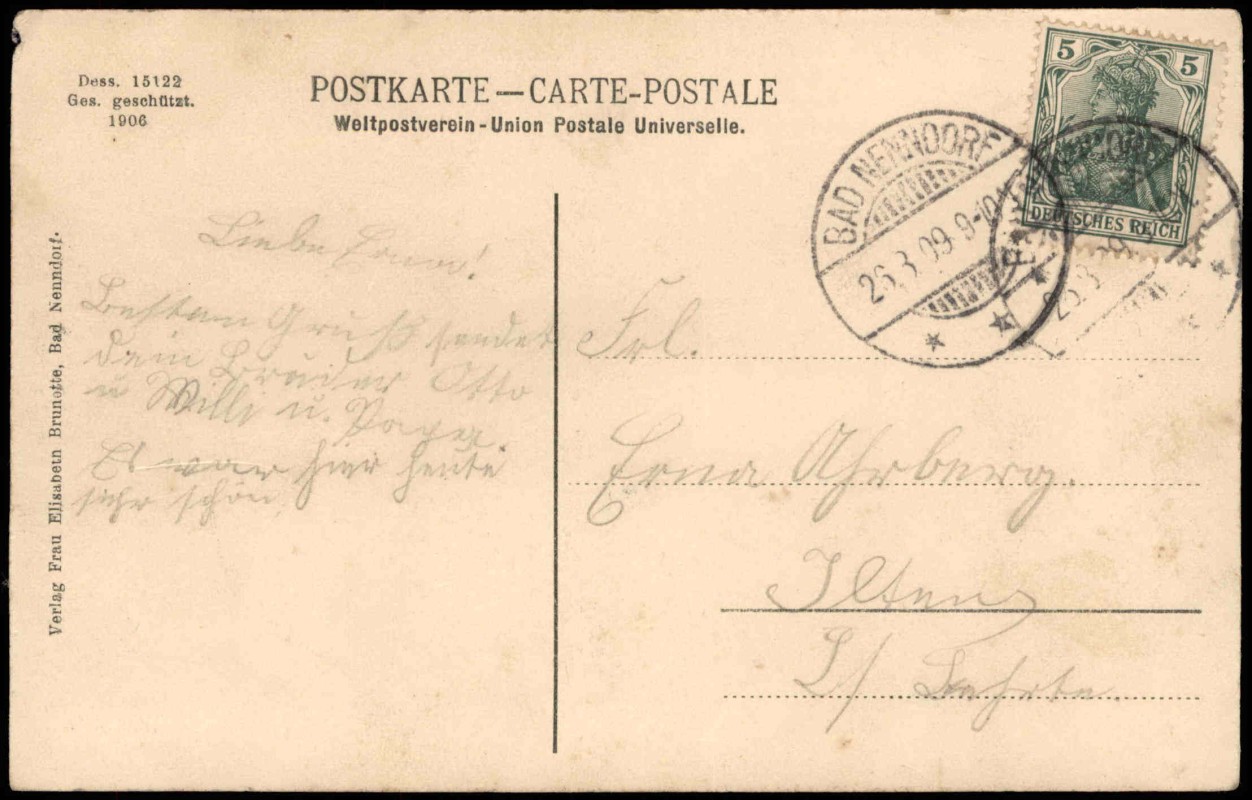 Dess. 15122
Ges. geschützt.
1906
POSTKARTE — CARTE-POSTALE
Weltpostverein - Union Postale Universelle.
5 5
DEUTSCHES REICH
BAD NENNDORF
26.3.09. 9-10
Verlag Frau Elisabeth Brunotte, Bad Nenndorf.
Liebe Erna!
Besten Gruß sendet
dein Bruder Otto
u Willi u. Papa.
Es war hier heute
sehr schön.
Frl.
Erna Ahrberg.
Ilten
b/ Lehrte